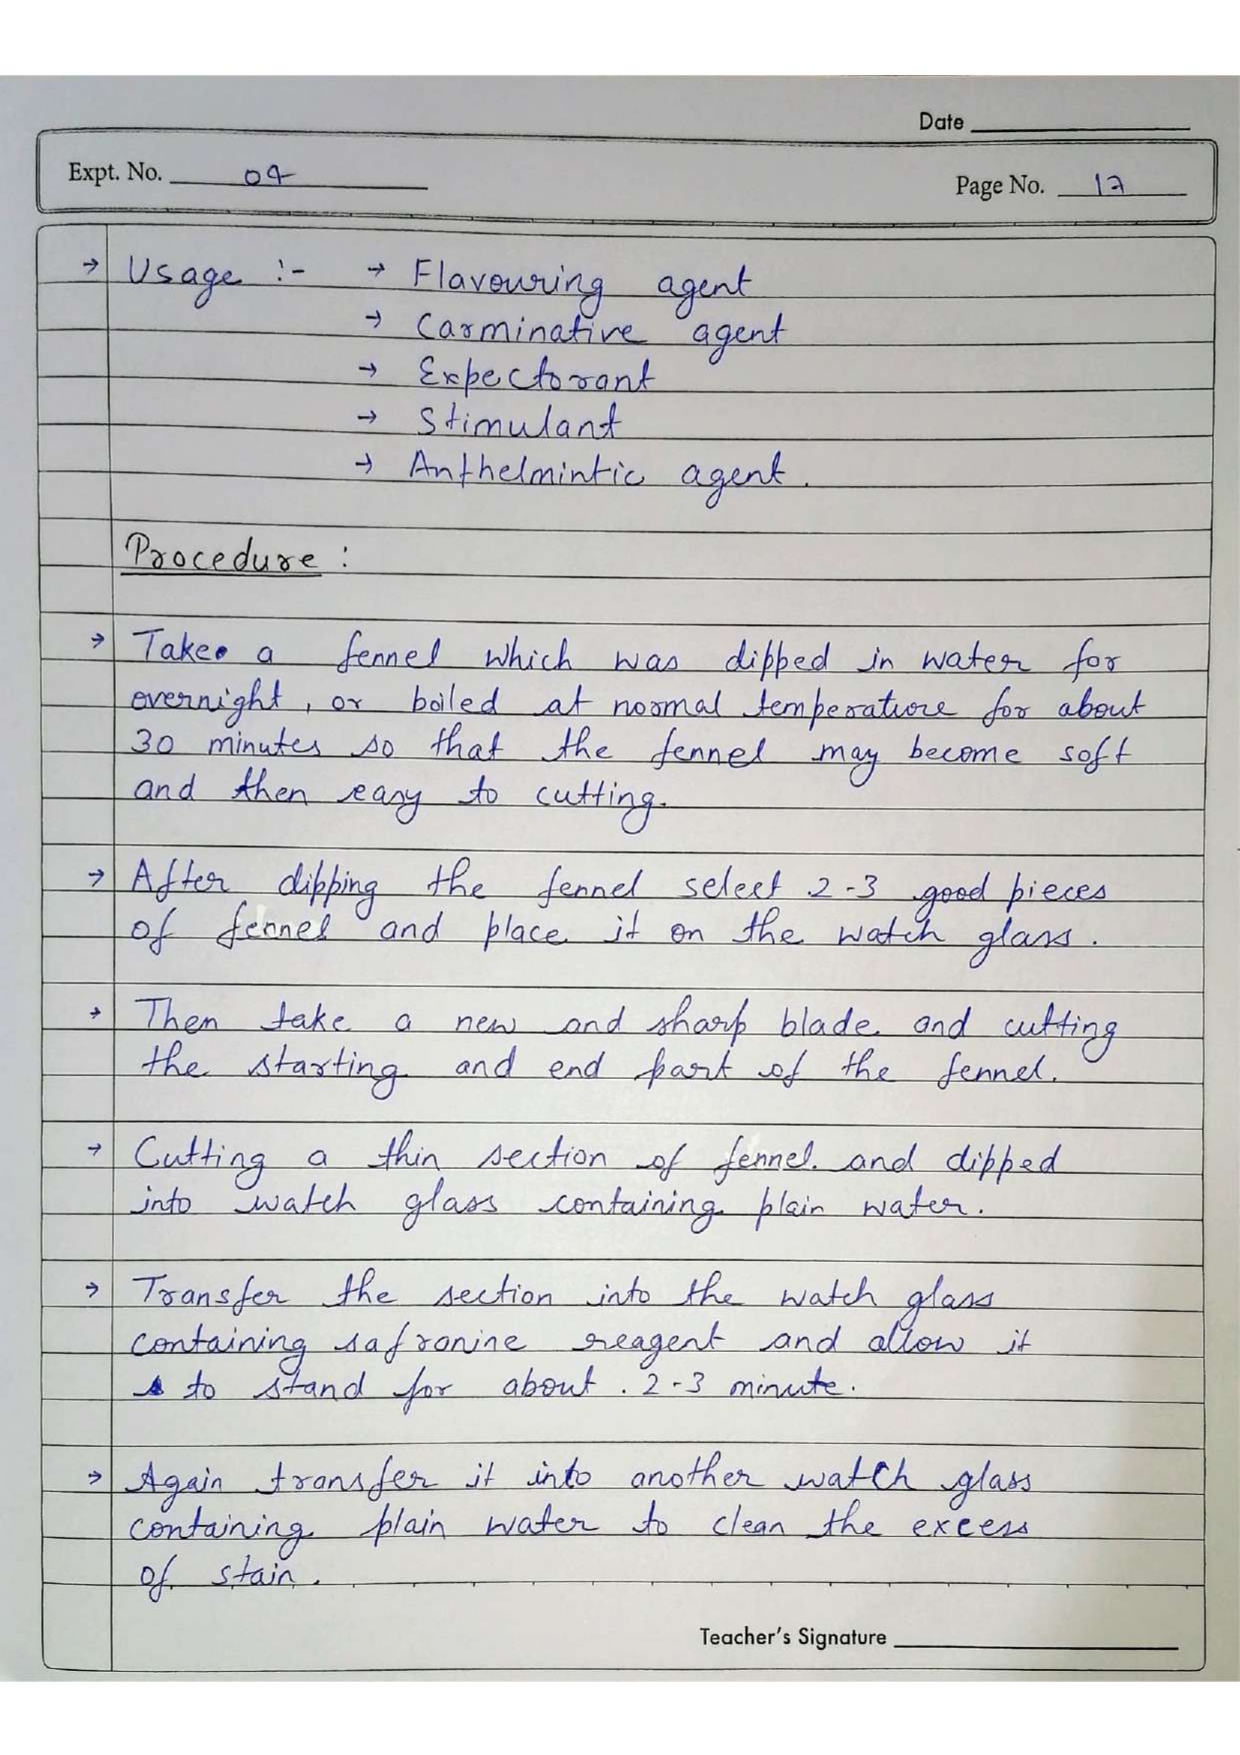 Date
Expt. No. 04
Page No. 12
→ Usage :- → Flavouring agent
→ Carminative agent
→ Expectorant
→ Stimulant
→ Anthelmintic agent.
Procedure :
→ Take a fennel which was dipped in water for
overnight, or boiled at normal temperature for about
30 minutes so that the fennel may become soft
and then easy to cutting.
→ After dipping the fennel select 2-3 good pieces
of fennel and place it on the watch glass.
→ Then take a new and sharp blade and cutting
the starting and end part of the fennel.
→ Cutting a thin section of fennel. and dipped
into watch glass containing plain water.
→ Transfer the section into the watch glass
containing safronine reagent and allow it
to stand for about . 2-3 minute.
→ Again transfer it into another watch glass
containing plain water to clean the excess
of stain.
Teacher's Signature